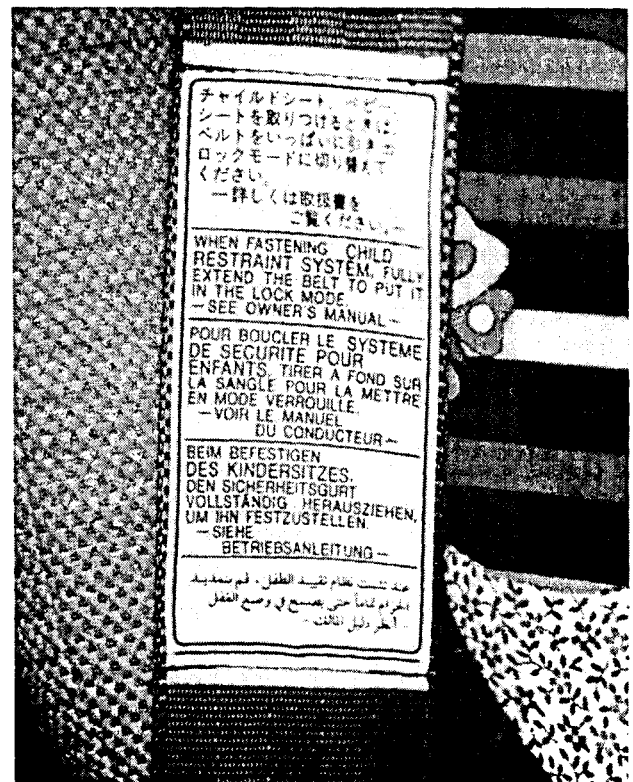 チャイルドシート、ベビー
シートを取りつけるときは、
ベルトをいっぱいに引き出
ロックモードに切り替えて
ください。
―詳しくは取扱書を
ご覧ください。―
WHEN FASTENING CHILD
RESTRAINT SYSTEM, FULLY
EXTEND THE BELT TO PUT IT
IN THE LOCK MODE.
—SEE OWNER'S MANUAL—
POUR BOUCLER LE SYSTEME
DE SECURITE POUR
ENFANTS, TIRER A FOND SUR
LA SANGLE POUR LA METTRE
EN MODE VERROUILLE.
—VOIR LE MANUEL
DU CONDUCTEUR—
BEIM BEFESTIGEN
DES KINDERSITZES,
DEN SICHERHEITSGURT
VOLLSTÄNDIG HERAUSZIEHEN,
UM IHN FESTZUSTELLEN.
—SIEHE
BETRIEBSANLEITUNG—
عند تثبيت نظام تقييد الطفل، قم بتمديد
الحزام تماماً حتى يصبح في وضع القفل
- أنظر دليل المالك -